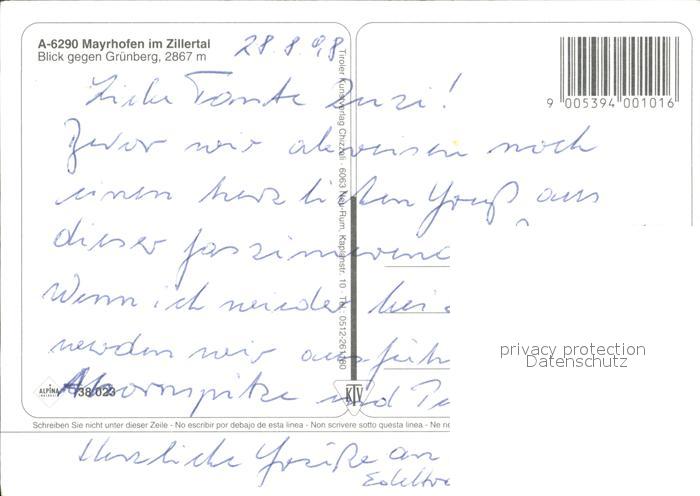 A-6290 Mayrhofen im Zillertal
Blick gegen Grünberg, 2867 m
28.8.98
9 005394 001016
Liebe Tante Zuzi!
Bevor wir abreisen noch
einen herzlichen Gruß aus
dieser faszinierend
Wenn ich wieder bei
werden wir ausführ
Ahornspitze und
Tiroler Kunstverlag Chizzali · 6063 Neu-Rum, Kaplanstr. 10 · Tel. 0512-261180
ALPINA
38 023
KTV
privacy protection
Datenschutz
Schreiben Sie nicht unter dieser Zeile - No escribir por debajo de esta linea - Non scrivere sotto questa linea - Ne
Herzliche Grüße an